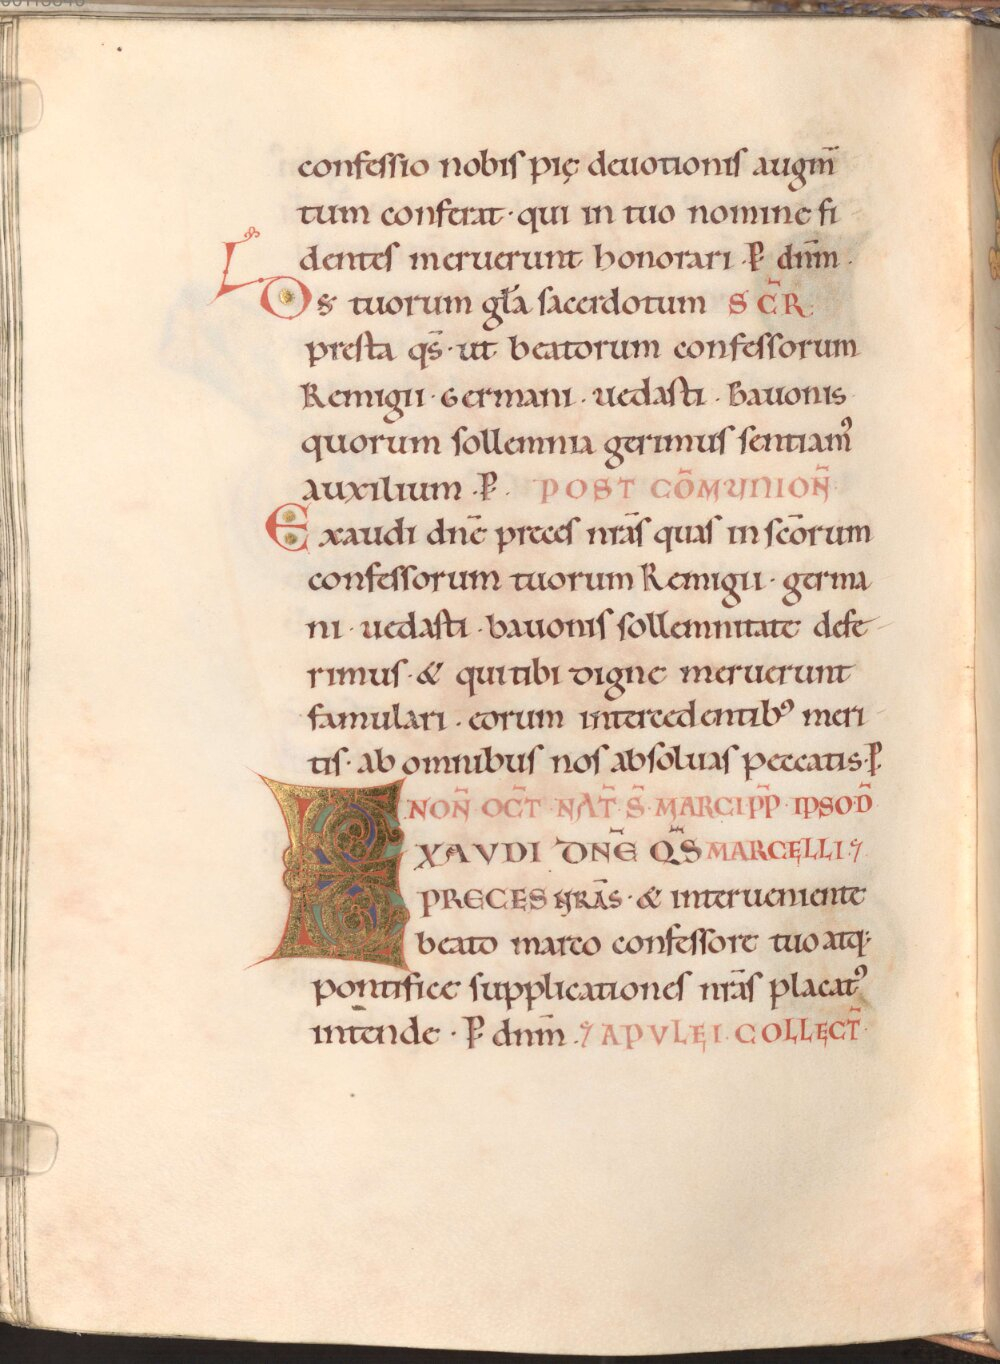 confessio nobis pię deuotionis augm̄
tum conferat · qui in tuo nomine fi
dentes meruerunt honorari · P̄ dn̄m ·
L
Ds tuorum gl̄a sacerdotum SCR̄
presta qs̄ · ut beatorum confessorum
Remigii · Germani · uedasti · Bauonis
quorum sollemnia gerimus sentiamꝰ
auxilium · P̄ · POST CŌMUNION̄
Exaudi dnē preces nrās quas in scōrum
confessorum tuorum Remigii · germa
ni · uedasti · bauonis sollemnitate defe
rimus · & qui tibi digne meruerunt
famulari · eorum intercedentibꝰ meri
tis · ab omnibus nos absoluas peccatis · P̄
NON̄ OCT̄ NAT̄ S̄ MARCI PP̄ IPSO D̄
EXAVDI DN̄E QS̄ MARCELLI ⁊
PRECES NRĀS · & interueniente
beato marco confessore tuo atq;
pontifice supplicationes nrās placatꝰ
intende · P̄ dn̄m · ⁊ APVLEI COLLECT̄